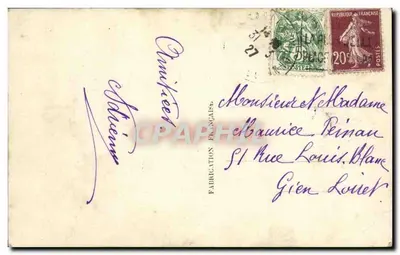 Amitiés
Adrienne
FABRICATION FRANÇAISE
14
31
27
REPUBLIQUE FRANÇAISE
20c
Monsieur et Madame
Maurice
51 Rue Louis Blanc
Gien Loiret
CPARAMA